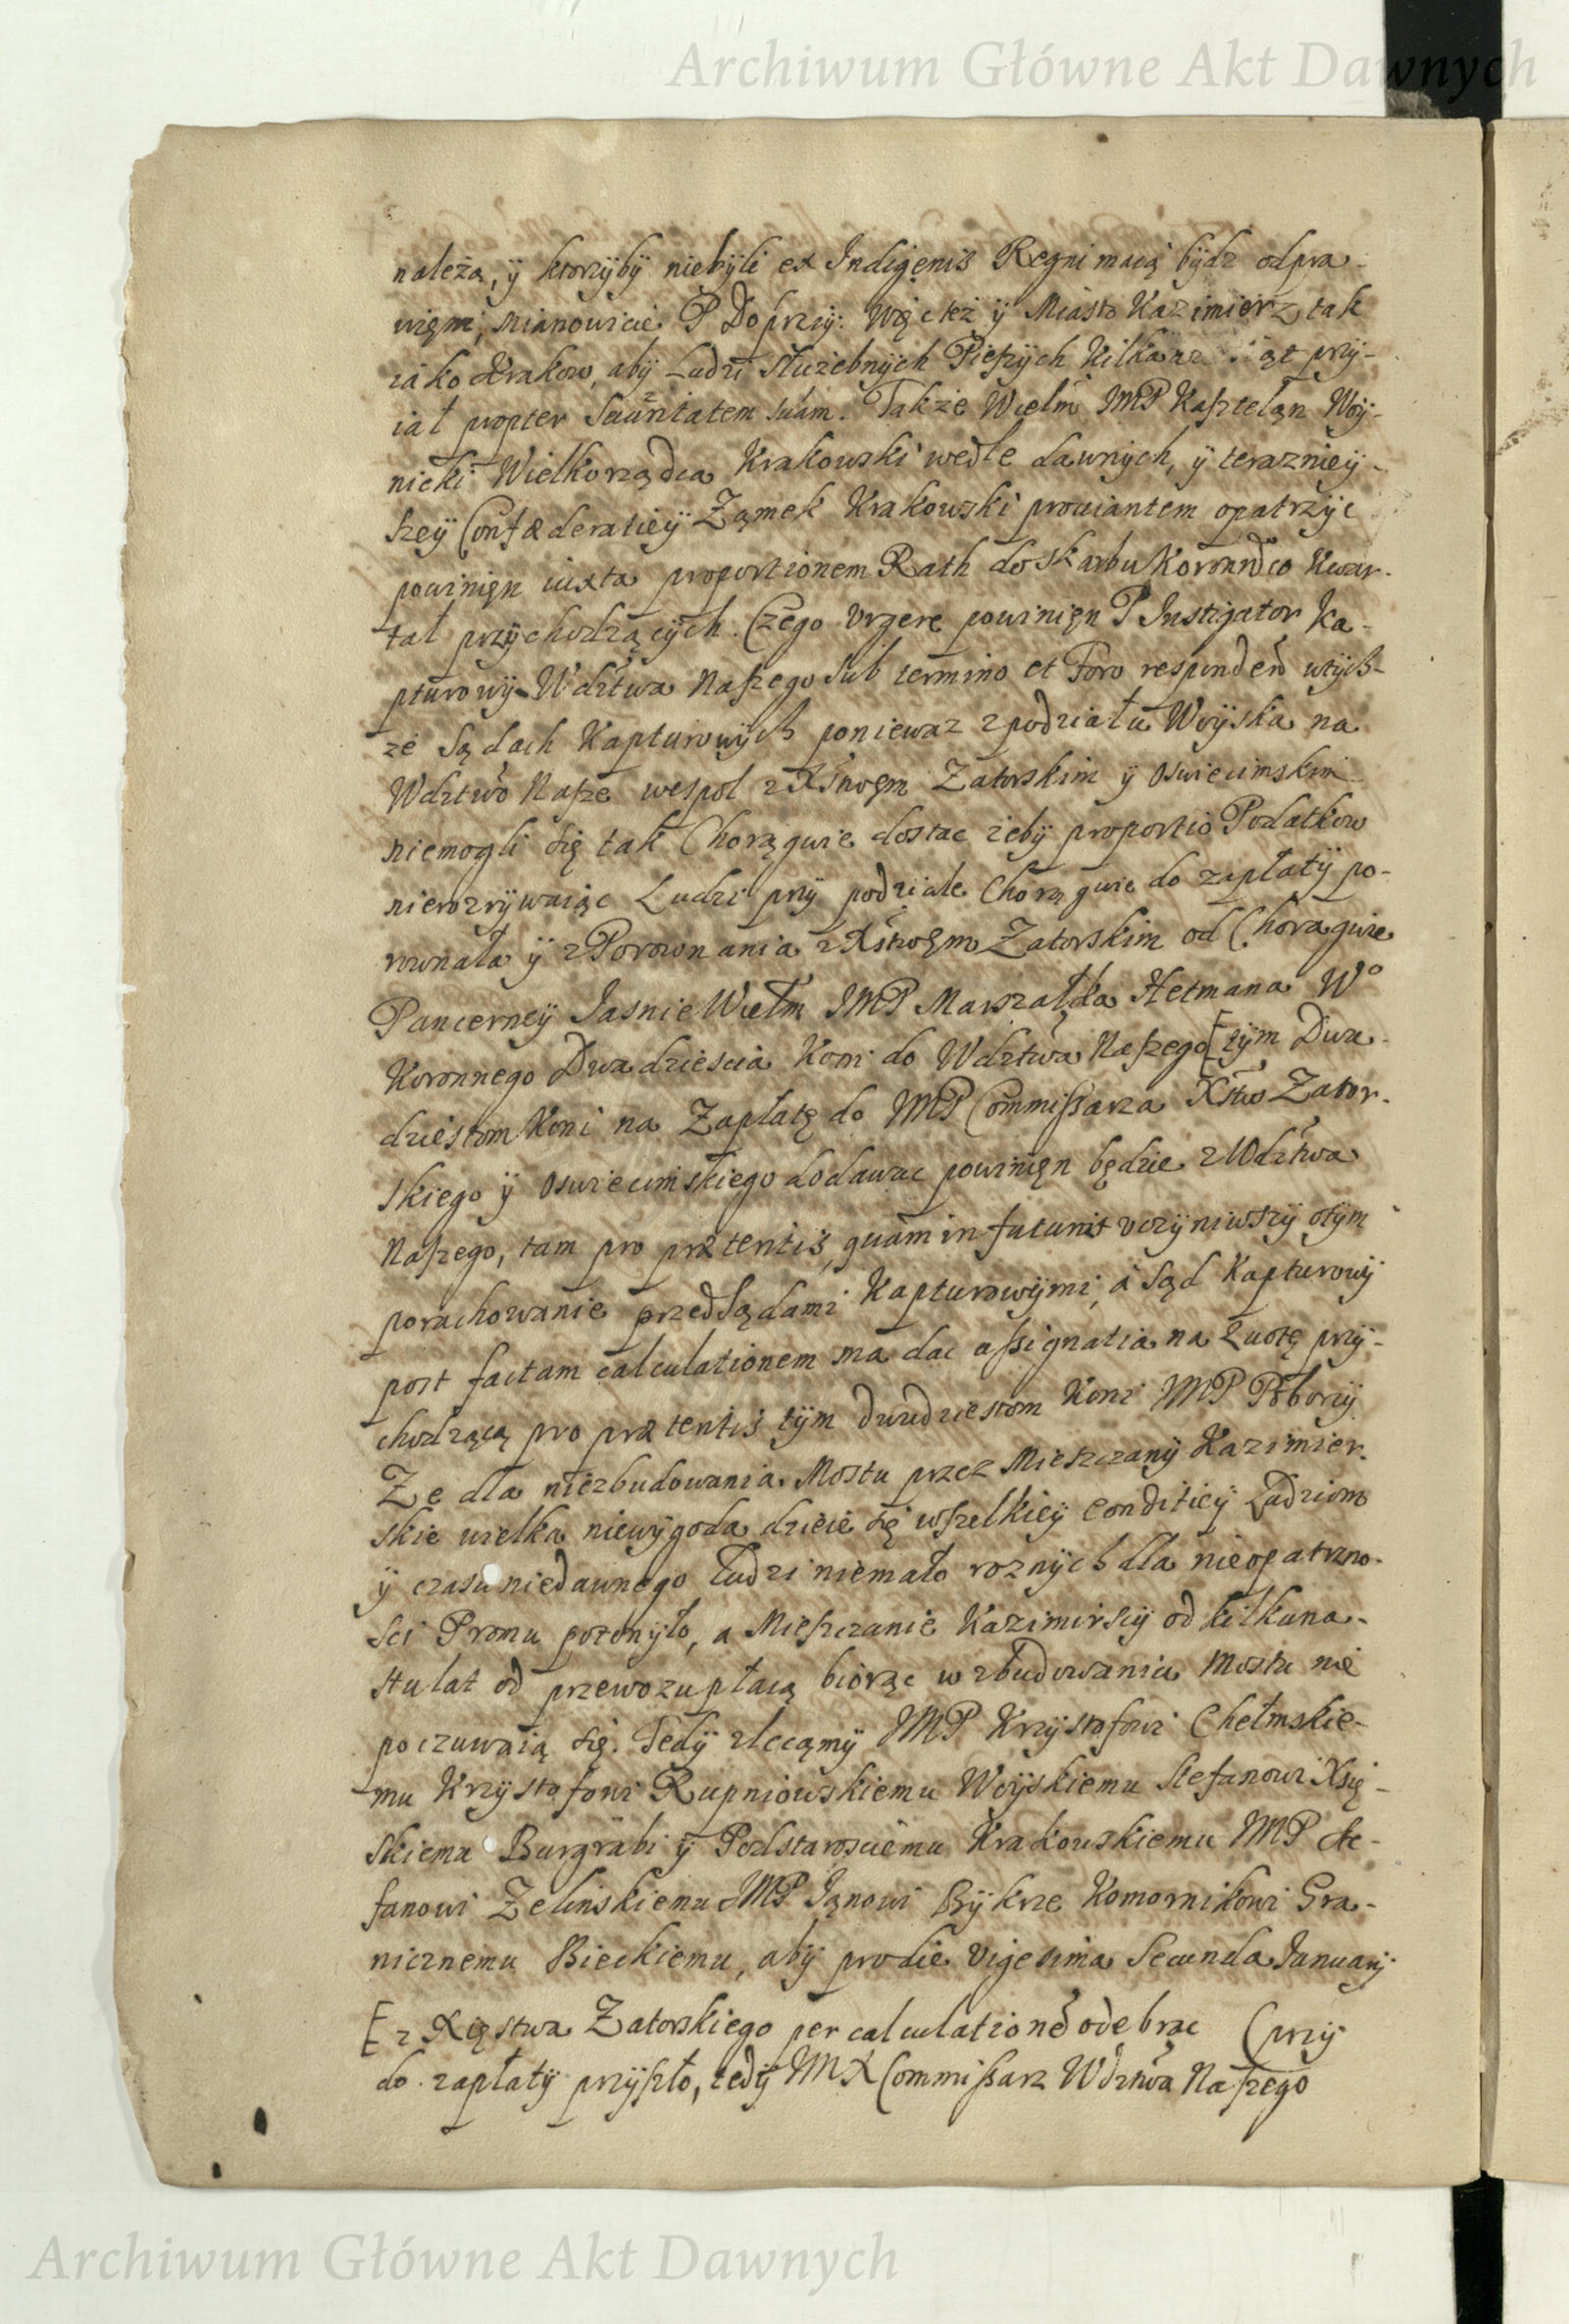 Archiwum Główne Akt Dawnych
należą, ÿ ktorzÿbÿ niebÿli ex Indigenis Regni maią bÿdz odpra-
więni, mianowicie P Doprzÿ: Więc też ÿ Miasto Kazimierz tak
iako Krakow, abÿ Ludzi Służebnÿch Pieszÿch przÿ-
iał propter Securitatem suam. Także Wielm JMP Kaszteląn Woÿ-
nicki Wielkorządca Krakowski wedle dawnÿch, ÿ teraznieÿ-
szeÿ Confæderatieÿ Zamek Krakowski prowiantem opatrzÿc
powinięn iuxta proportionem Rath do Skarbu Koronnego Kwar-
tał przÿchodzącÿch. Czego Vrgere powinięn P Instigator Ka-
pturowÿ Wdztwa Naszego Sub termino et Foro respondend wtÿch-
ze Sądach Kapturowÿch poniewaz z podziału Woÿska na
Wdztwo Nasze wespol z Xstwem Zatorskim ÿ Oswiecimskim
niemogli się tak Chorągwie dostac żebÿ proportio Podatkow
nierozrÿwaiąc Ludzi przÿ podziale Chorągwie do zapłatÿ po-
rownała ÿ z Porownania z Xstwem Zatorskim od Chorągwie
Pancerneÿ Jasnie Wielm JMP Marszałka Hetmana Wo
Koronnego Dwadziescia Koni do Wdztwa Naszego [tÿm Dwa-
dziestom Koni na Zapłatę do JMP Commissarza Xstwo Zator-
skiego ÿ Oswiecimskiego dodawac powinięn będzie z Wdztwa
Naszego, tam pro prætentis, quam in futuris vczÿniwszÿ otÿm
porachowanie przed Sądami Kapturowÿmi, a Sąd Kapturowÿ
post factam calculationem ma dac assignatia na quotę przÿ-
chodzącą pro prætentis tÿm dwudziestom Koni JMP Poborcÿ
Ze dla niezbudowania Mostu przez Mieszczanÿ Kazimier-
skie wielka niewÿgoda dzieie się wszelkieÿ conditieÿ Ludziom
ÿ czasu niedawnego ludzi niemało roznÿch dla nieopatrzno-
sci Promu potonÿło, a Mieszczanie Kazimirscÿ od kilkuna-
stu lat od przewozu płacą biorąc w zbudowaniu Mostu nie
poczuwaią się. Tedÿ zlecamÿ JMP Krzÿstofowi Chełmskie-
mu Krzÿstofowi Rupniowskiemu Woÿskiemu Stefanowi Xsię-
skiemu Burgrabi ÿ Podstarosciemu Krakowskiemu JMP Ste-
fanowi Zelinskiemu JMP Janowi Bÿkrze Komornikowi Gra-
nicznemu Bieckiemu, abÿ pro die Vigesima Secunda Januarij
[z Xięstwa Zatorskiego per calculationem odebrac (przÿ
do zapłatÿ przÿszło, tedÿ JMX Commissarz Wdztwa Naszego
Archiwum Główne Akt Dawnych